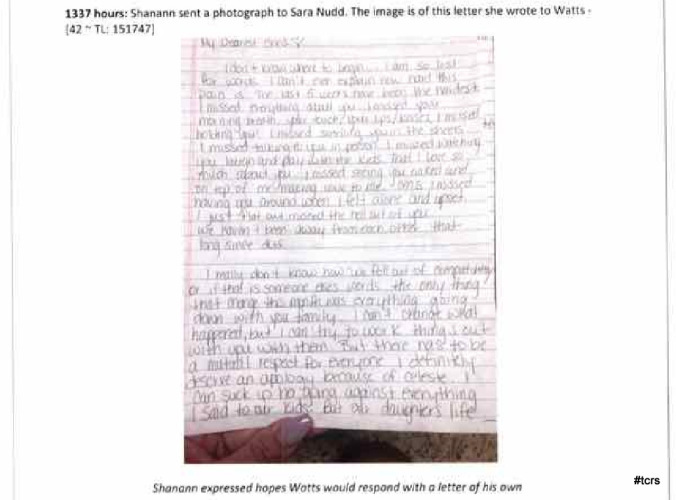 1337 hours: Shanann sent a photograph to Sara Nudd. The image is of this letter she wrote to Watts -
[42 ~ TL: 151747]
My Dearest
I don't know where to begin... I am so lost
for words. I can't even explain how hard this
pain is. The last 5 weeks have been the hardest.
I missed everything about you. I missed your
morning breath, your touch, your lips/kisses, I missed
holding you! I missed you in the sheets.
I missed talking to you in person. I missed watching
you laugh and play with the kids that I love so
much about you. I missed seeing you naked and
on top of me making love to me. I missed
having you around when I felt alone and upset.
I just flat out missed the hell out of you.
We haven't been away from each other that
long since
I really don't know how we fell out of compatibility
or if that is someone elses words. The only thing
that change this month was everything going
down with your family. I can't change what
happened, but I can try to work things out
with you with them. But there has to be
a mutual respect for everyone. I definitely
deserve an apology because of celeste. I
can suck up going against everything
I said to our kids. But our daughter's life
Shanann expressed hopes Watts would respond with a letter of his own
#tcrs